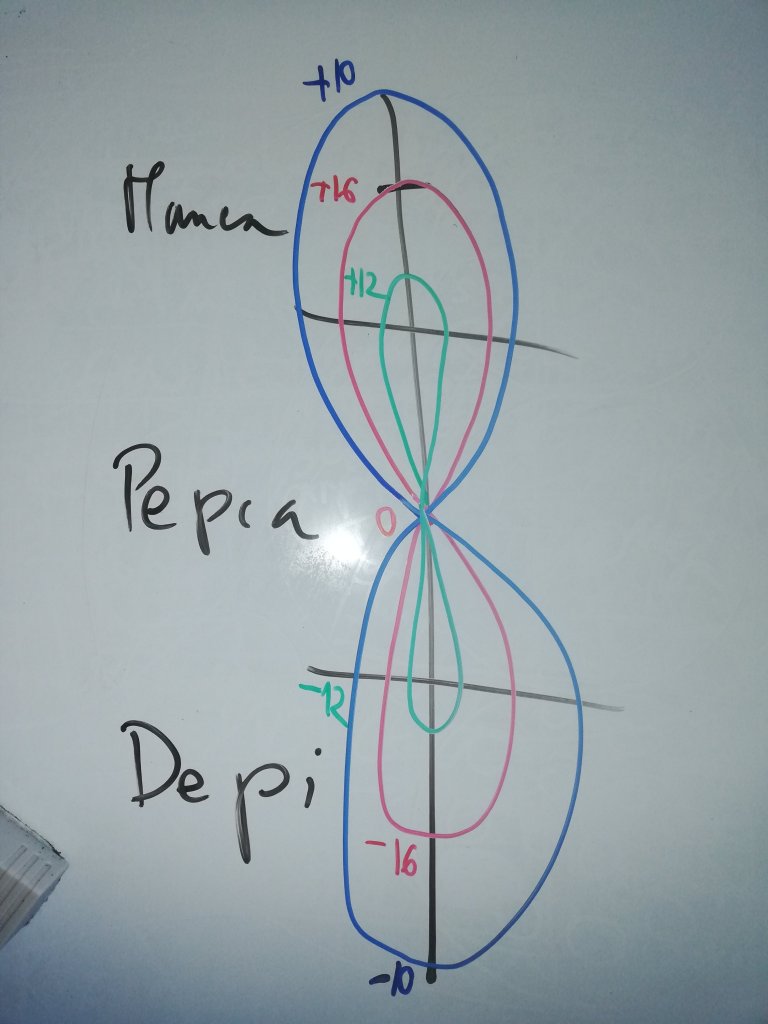 +10
+16
Manca
+12
Pepca
0
-12
Depi
-16
-10